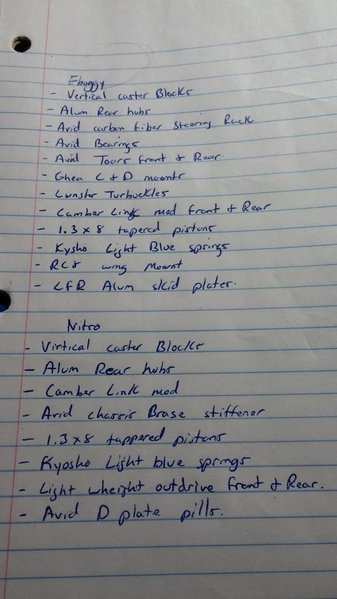 Ebuggy
- Vertical caster Blocks
- Alum Rear hubs
- Avid carbon fiber Steering Rack
- Avid Bearings
- Avid Tours front & Rear
- Ghea C & D mounts
- Lunsfor Turbuckles
- Camber Link mod front & Rear
- 1.3x8 tapered pistons
- Kysho Light Blue springs
- RC8 wing Mount
- LFR Alum skid plates.
Nitro
- Virtical caster Blocks
- Alum Rear hubs
- Camber Link mod
- Avid chassis Brase stiffener
- 1.3x8 tappered pistons
- Kyosho Light blue springs
- Light wheight outdrive front & Rear.
- Avid D plate pills.